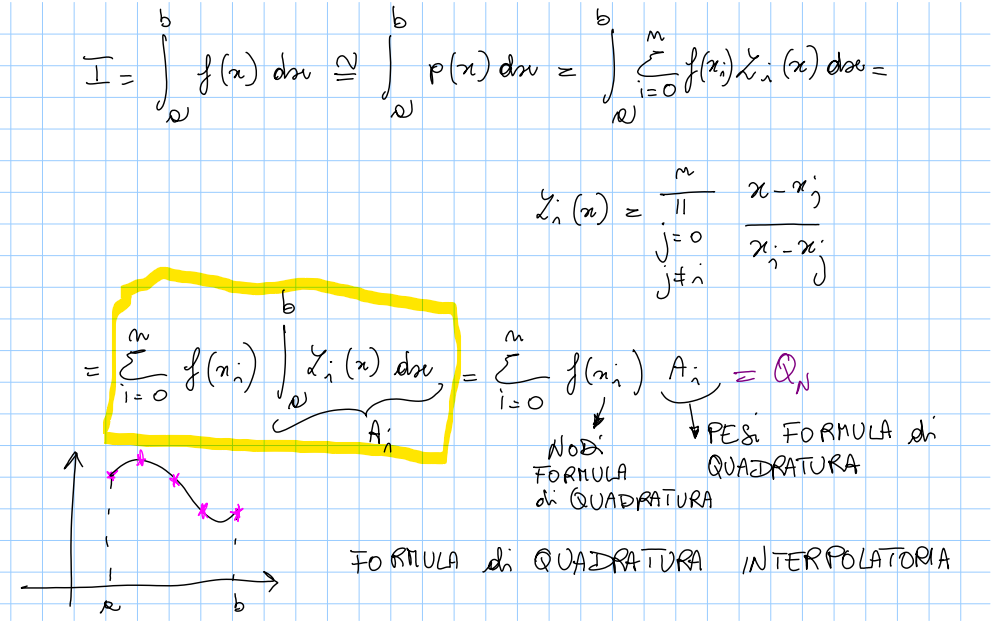 I = ∫_a^b f(x) dx ≅ ∫_a^b p(x) dx = ∫_a^b ∑_{i=0}^n f(x_i) L_i(x) dx =
L_i(x) = ∏_{j=0, j≠i}^n (x - x_j)/(x_i - x_j)
= ∑_{i=0}^n f(x_i) ∫_a^b L_i(x) dx = ∑_{i=0}^n f(x_i) A_i = Q_N
A_i
NODI FORMULA di QUADRATURA
PESI FORMULA di QUADRATURA
a b
FORMULA di QUADRATURA INTERPOLATORIA